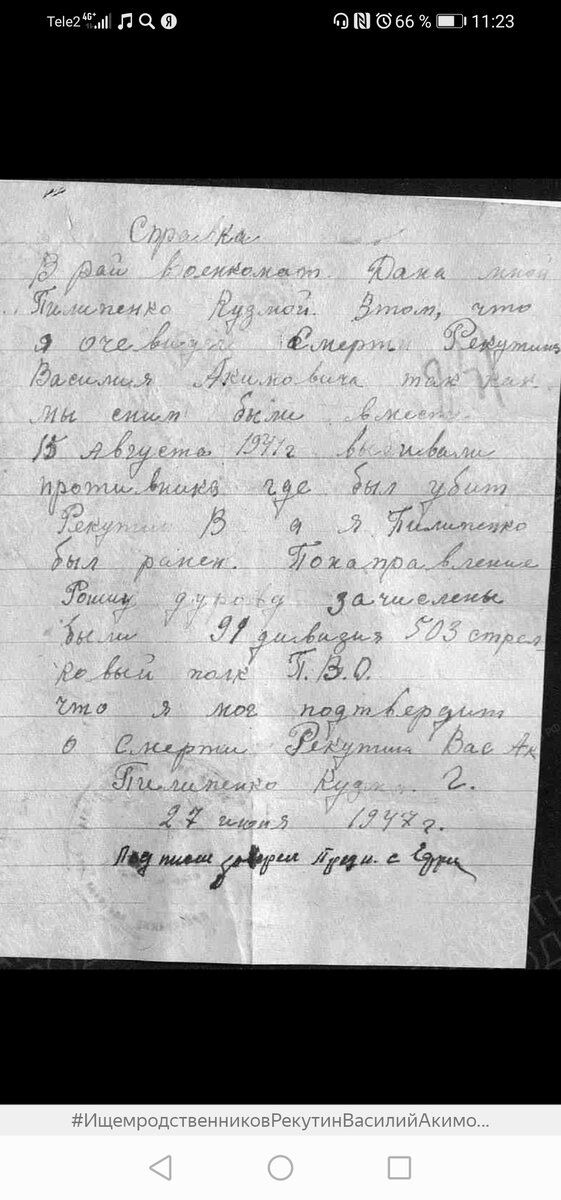 Tele2 4G+ 66 % 11:23
Справка
В рай военкомат Дана мной
Пилипенко Кузмой. Втом, что
я очевидец Смерти Рекутина
Василия Акимовича так как
мы сним были вместе.
15 Августа 1941г выбивали
противника где был убит
Рекутин В а я Пилипенко
был ранен. Понаправление
Рощу дурова зачислены
были 91 дивизия 503 стрел
ковый полк П.В.О.
что я мог подтвердит
о Смерти Рекутина Вас Ак
Пилипенко Кузма. Г.
27 июня 1947г.
Подписи заверел Предс. с
#ИщемродственниковРекутинВасилийАкимо...